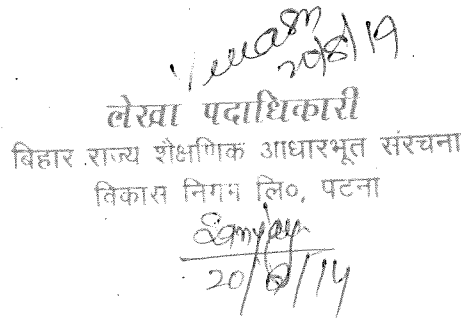 20/8/19
लेखा पदाधिकारी
बिहार राज्य शैक्षणिक आधारभूत संरचना
विकास निगम लि०, पटना
Sanjay
20/8/14